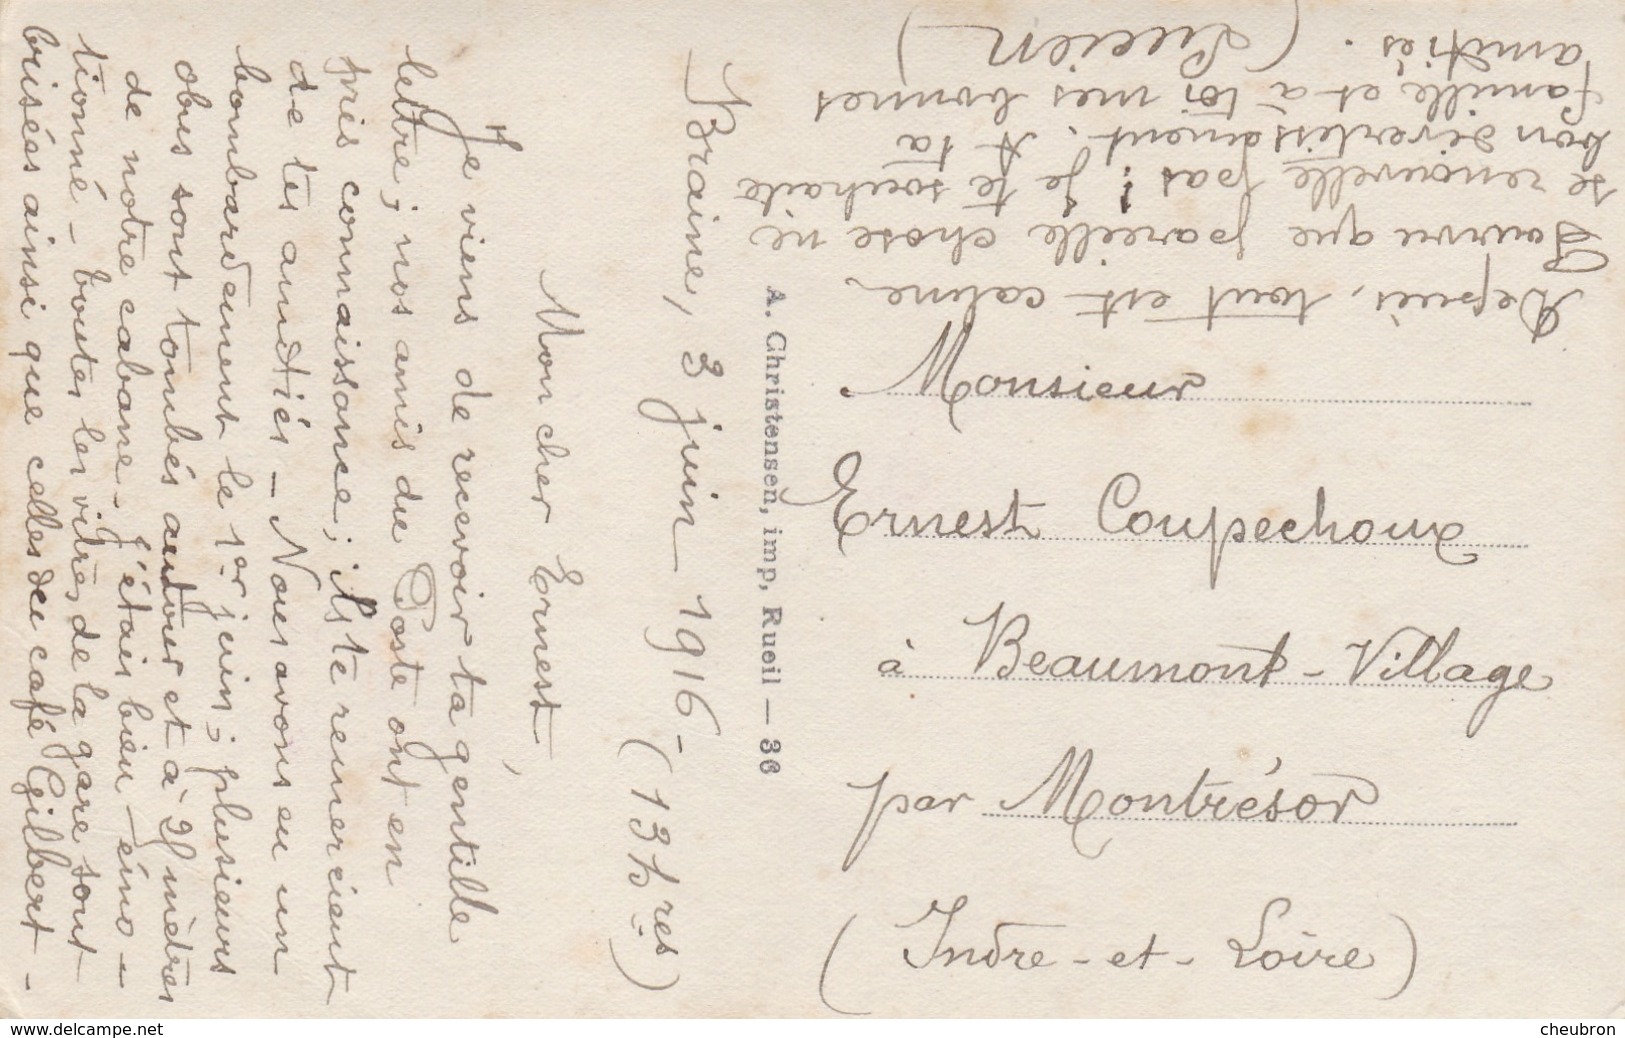 Braine, 3 juin 1916 - (13 hres)
Mon cher Ernest,
Je viens de recevoir ta gentille
lettre ; nos amis du Poste ont en
pris connaissance ; ils te remercient
de tes amitiés - Nous avons eu un
bombardement le 1er juin ; plusieurs
obus sont tombés autour et à 25 mètres
de notre cabane - J'étais bien émo-
tionné - toutes les vitres de la gare sont
brisées ainsi que celles du café Gilbert -
Depuis, tout est calme
Pourvu que pareille chose ne
se renouvelle pas ! Je te souhaite
bon divertissement. A ta
famille et à toi mes bonnes
amitiés. (Lucien)
A. Christensen, imp, Rueil — 36
Monsieur
Ernest Coupechoux
à Beaumont-Village
par Montrésor
(Indre-et-Loire)
www.delcampe.net
cheubron